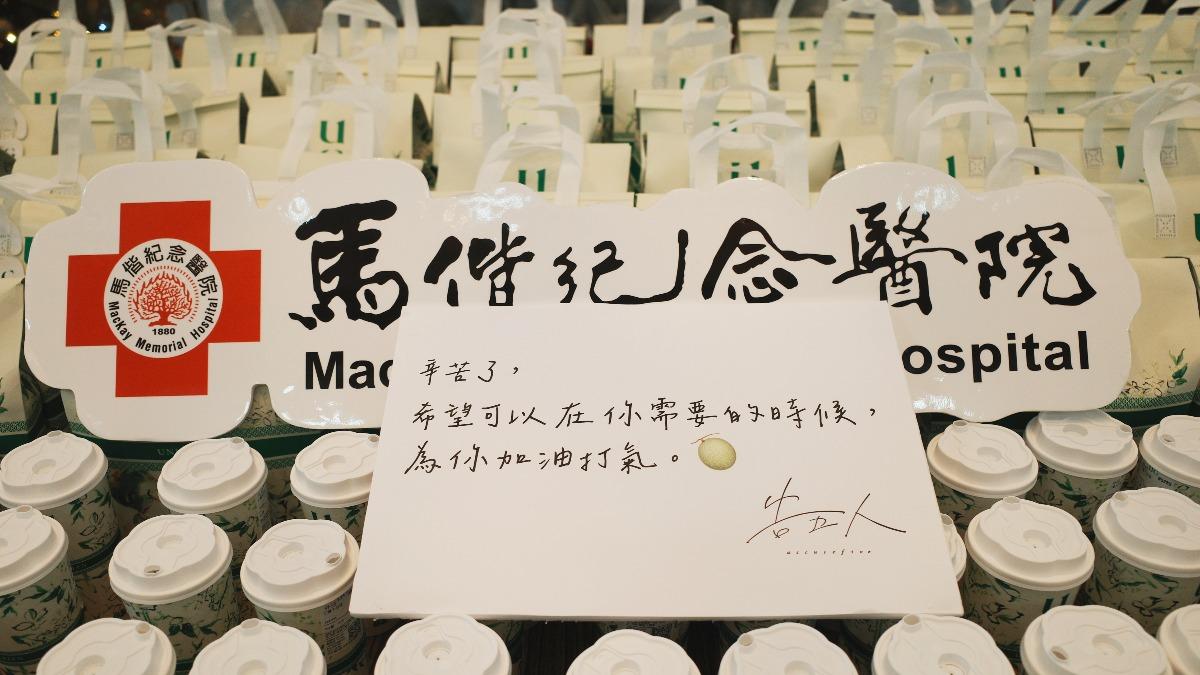 馬偕紀念醫院
馬偕紀念醫院
MacKay Memorial Hospital
1880
Mac
ospital
辛苦了，
希望可以在你需要的時候，
為你加油打氣。
告五人
accusefive